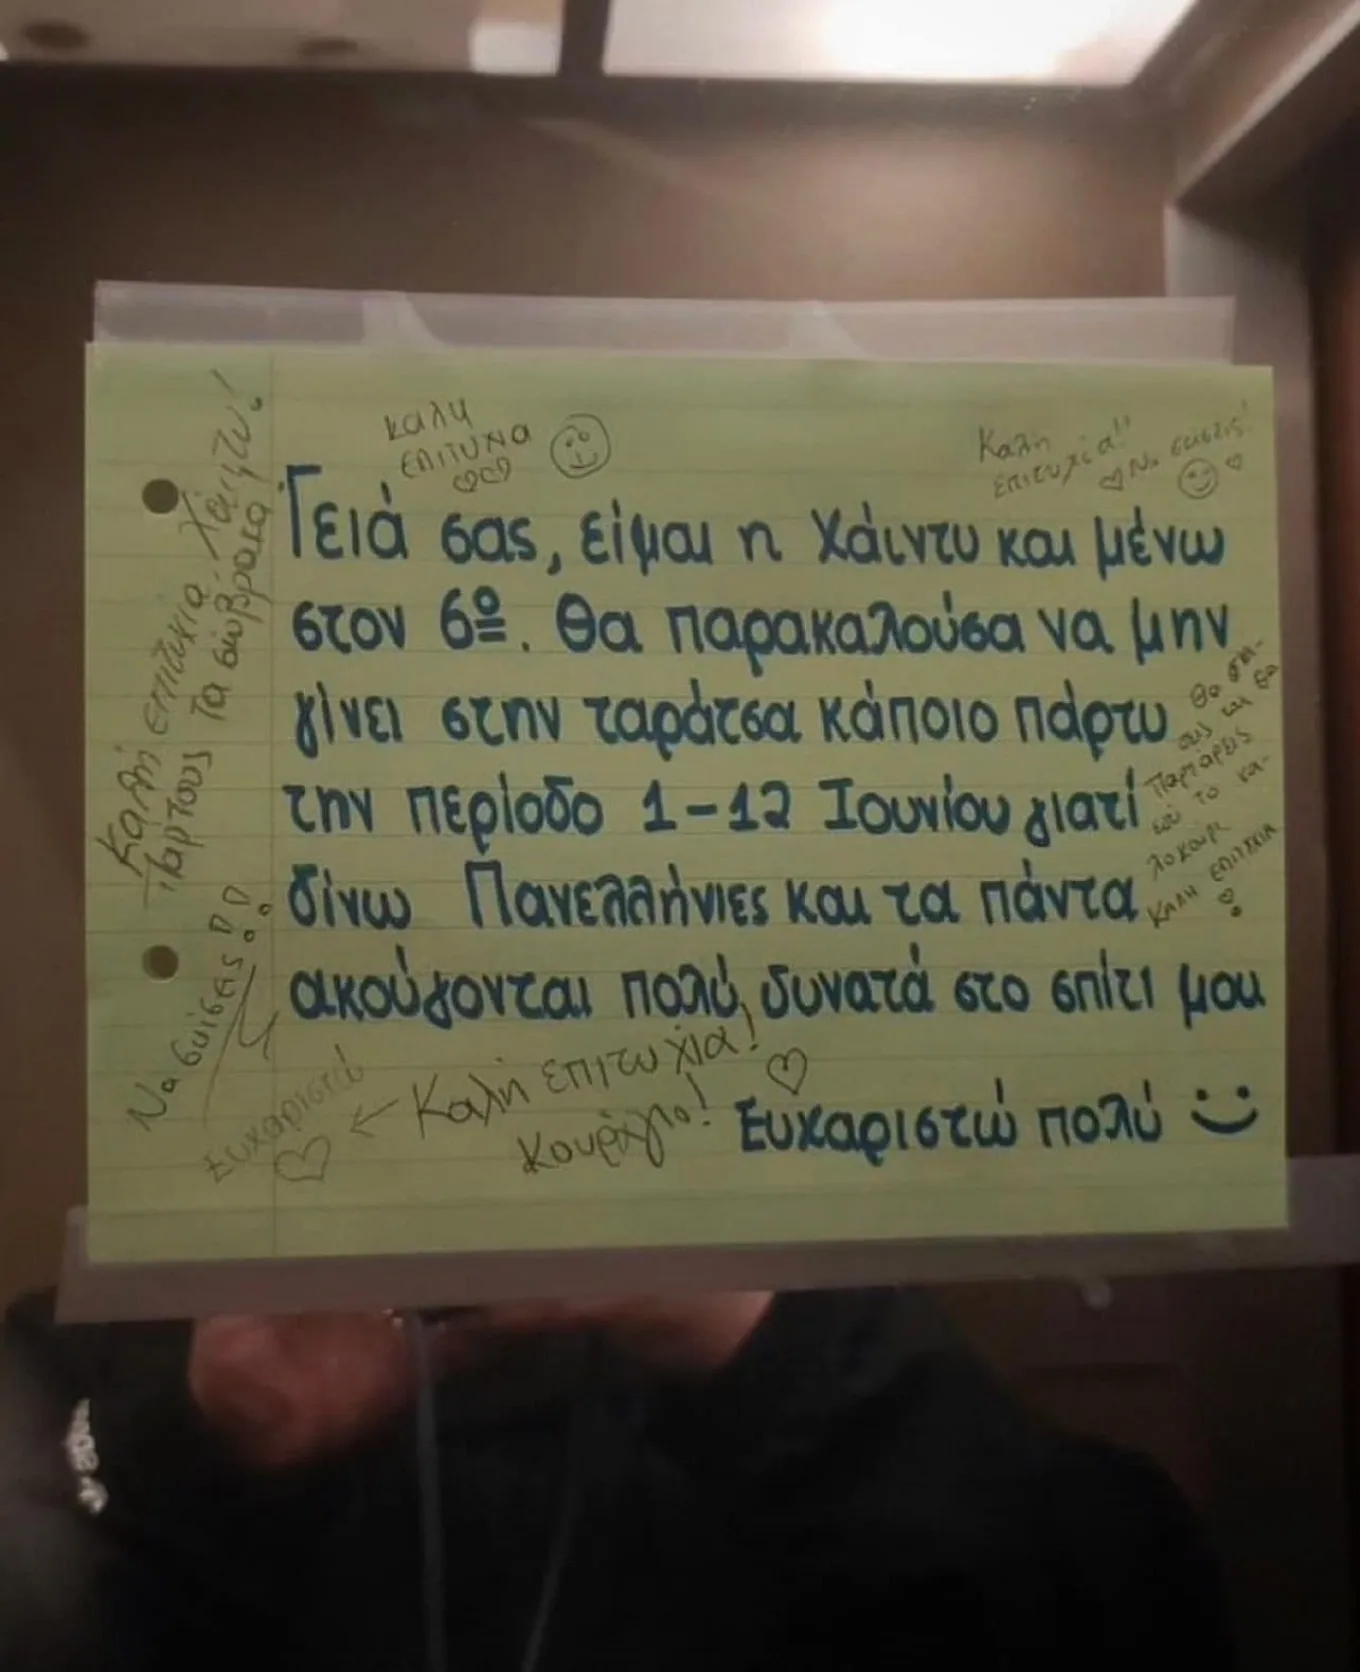 Καλή επιτυχία Χάιντυ!
Πάρτους τα σώβρακα
καλη
επιτυχια
Καλή
επιτυχία!!
Να σκίσεις!
Γειά σας, είμαι η Χάιντυ και μένω
στον 6º. Θα παρακαλούσα να μην
γίνει στην ταράτσα κάποιο πάρτυ
την περίοδο 1-12 Ιουνίου γιατί
δίνω Πανελλήνιες και τα πάντα
ακούγονται πολύ δυνατά στο σπίτι μου
Ευχαριστώ πολύ
Θα σκί-
σεις και θα
παρτάρεις
εσύ το κα-
λοκαίρι
ΚΑΛΗ ΕΠΙΤΥΧΙΑ
Να σκίσεις!!
Καλή επιτυχία!
Κουράγιο!
Ευχαριστώ